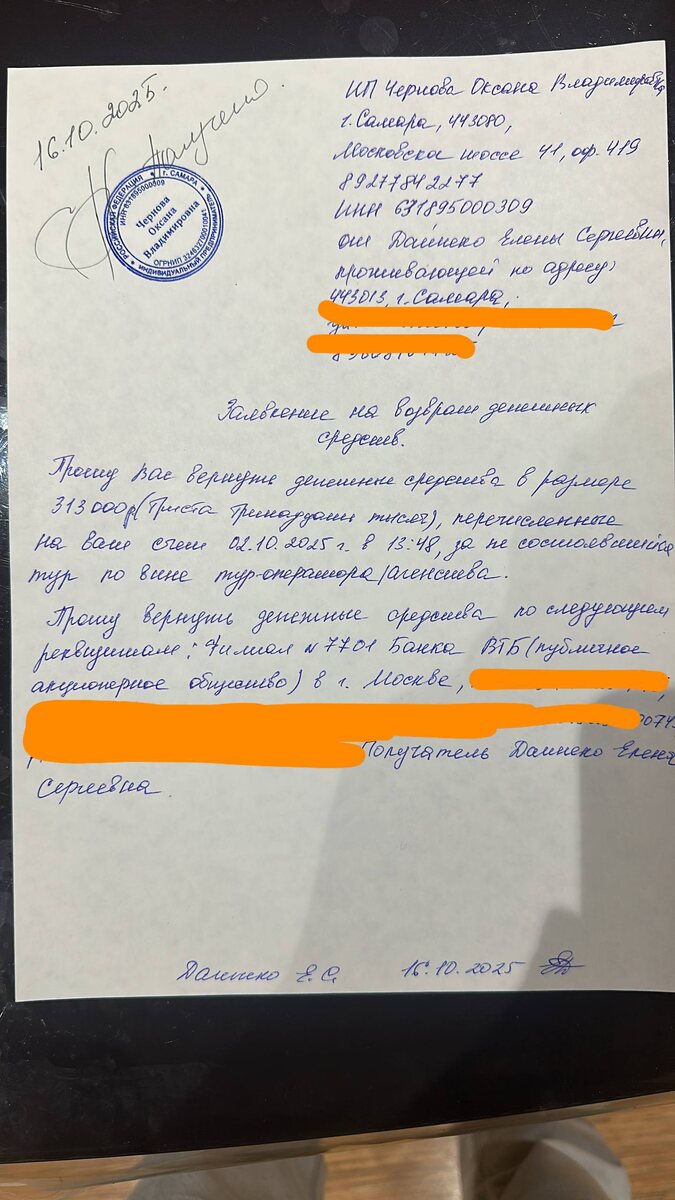 16.10.2025.
Получено.
РОССИЙСКАЯ ФЕДЕРАЦИЯ • г. САМАРА •
ИНДИВИДУАЛЬНЫЙ ПРЕДПРИНИМАТЕЛЬ
ИНН 631895000309
ОГРНИП
Чернова
Оксана
Владимировна
ИП Чернова Оксана Владимировна
г. Самара, 443080,
Московское шоссе 41, оф. 419
89277842277
ИНН 631895000309
от Дайнеко Елены Сергеевны,
проживающей по адресу:
443013, г. Самара,
Заявление на возврат денежных
средств.
Прошу Вас вернуть денежные средства в размере
313000р(Триста Тринадцать тысяч), перечисленные
на ваш счет 02.10.2025 г. в 13:48, за не состоявшийся
тур по вине тур-оператора/агенства.
Прошу вернуть денежные средства по следующим
реквизитам: Филиал №7701 Банка ВТБ(публичное
акционерное общество) в г. Москве,
Получатель Дайнеко Елена
Сергеевна.
Дайнеко Е.С. 16.10.2025